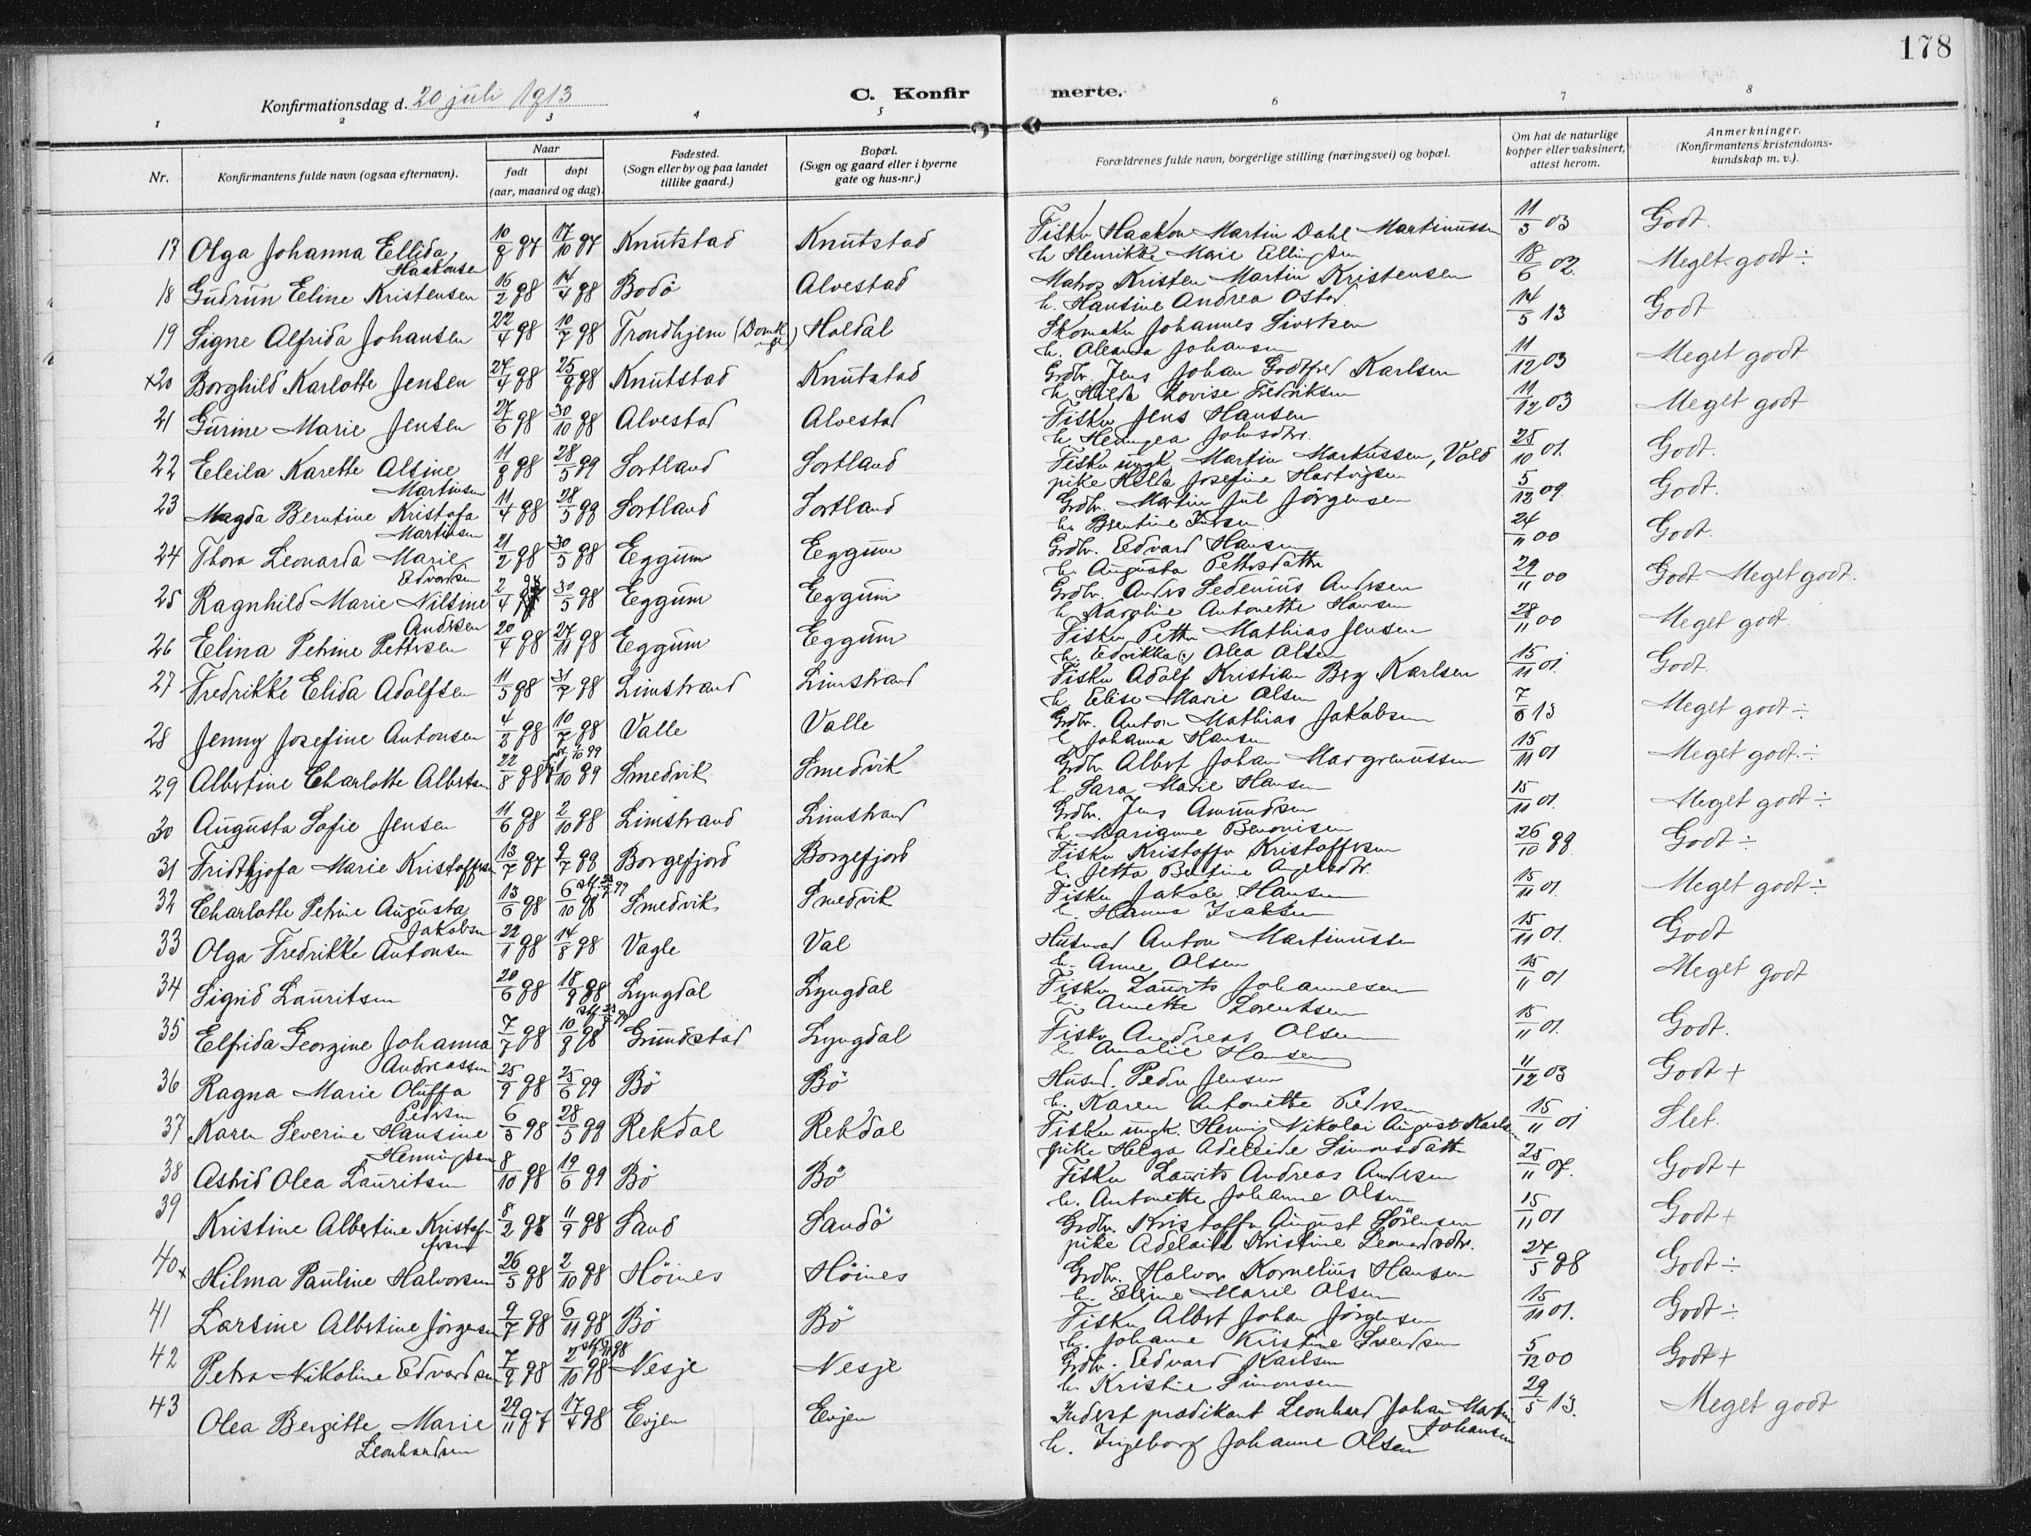 178
Konfirmationsdag d. 20 juli 1913
C. Konfir
merte.
1 2 3 4 5 6 7 8
Nr.
Konfirmantens fulde navn (ogsaa efternavn).
Naar
født
døpt
(aar, maaned og dag).
Fødested.
(Sogn eller by og paa landet
tillike gaard.)
Bopæl.
(Sogn og gaard eller i byerne
gate og hus-nr.)
Forældrenes fulde navn, borgerlige stilling (næringsvei) og bopæl.
Om hat de naturlige
kopper eller vaksinert,
attest herom.
Anmerkninger.
(Konfirmantens kristendoms-
kundskap m. v.).
17 Olga Johanna Ellida 10/8 97 17/10 97 Knutstad Knutstad Fisker Haakon Martin Dahl Martinussen 11/3 03 Godt.
Haakonsen h Henrikke Marie Ellingsen
18 Gudrun Eline Kristensen 16/2 98 14/4 98 Bodö Alvestad Matros Kristen Martin Kristensen 18/6 02. Meget godt ÷
h. Hansine Andrea Ostad.
19 Signe Alfrida Johansen 22/4 98 10/7 98 Trondhjem Holdal Skomaker Johannes Sivertsen 14/5 13 Godt
h. Oleanna Johansen
×20 Borghild Karlotte Jensen 27/4 98 25/9 98 Knutstad Knutstad Grdbr. Jens Johan Godtfred Karlsen 11/12 03 Meget godt
h Hilda Lovise Fredriksen
21 Gurine Marie Jensen 27/6 98 30/10 98 Alvestad Alvestad Fisker Jens Hansen 11/12 03 Meget godt
h Johnsdtr.
22 Eleila Karette Alsine 11/9 98 28/5 99 Sortland Sortland Fisker ungk. Martin Markussen, Vold 25/10 01. Godt.
Martinsen pike Josefine Hartvigsen
23 Magda Berntine Kristofa 11/4 98 28/5 99 Sortland Sortland Grdbr. Martin Jul Jörgensen 5/12 09. Godt.
Martinsen h. Berntine Iversen.
24 Thora Leonarda Marie 21/2 98 30/5 98 Eggum Eggum Grdbr. Edvard Hansen 24/11 00 Godt.
Edvardsen h. Augusta Pettersdatter
25 Ragnhild Marie Nilsine 2/4 98 30/5 98 Eggum Eggum Grdbr. Anders Sedenius Andersen 29/11 00 Godt Meget godt.
Andersen h. Karoline Antonette Hansen
26 Elina Petrine Pettersen 20/4 98 27/11 98 Eggum Eggum Fisker Petter Mathias Jensen 28/11 00 Meget godt.
h. Edvikka Olea Olsen
27 Fredrikke Elida Adolfsen 11/5 98 31/7 98 Limstrand Limstrand Fisker Adolf Kristian Berg Karlsen 15/11 01 Godt.
h. Elise Marie Olsen
28 Jenny Josefine Antonsen 4/3 98 10/7 98 Valle Valle Grdbr. Anton Mathias Jakobsen 7/6 13 Meget godt ÷
h Johanna Hansen
29 Albertine Charlotte Albertsen 22/8 98 Smedvik Smedvik Grdbr Albert Johan Margrenussen 15/11 01 Meget godt ÷
h Sara Marie Hansen
30 Augusta Sofie Jensen 11/6 98 2/10 98 Limstrand Limstrand Grdbr. Jens Amundsen 15/11 01. Meget godt ÷
h. Marianne Benonisen
31 Fridthjofa Marie Kristoffersen 13/7 97 9/7 99 Borgefjord Borgefjord Fisker Kristoffer Kristoffersen 26/10 99 Godt ÷
h. Jetta Bertine
32 Charlotte Petrine Augusta 13/6 98 6/10 98 Smedvik Smedvik Fisker Jakob Hansen 15/11 01. Meget godt ÷
Jakobsen h. Hanna Isaksen
33 Olga Fredrikke Antonsen 22/1 98 14/8 98 Vagle Val Husmand Anton Martinussen 15/11 01. Godt
h. Anne Olsen
34 Sigrid Lauritsen 20/6 98 18/9 98 Lyngdal Lyngdal Fisker Laurits Johannesen 15/11 01 Meget godt
h. Anette Lorentsen
35 Elfrida Georgine Johanna 7/7 98 10/9 98 Grundstad Lyngdal Fisker Andreas Olsen 15/11 01. Godt.
Andreassen h. Amalie Hansen
36 Ragna Marie Oluffa 25/9 98 25/6 99 Bö Bö Husmd. Peder Jensen 11/12 03 Godt +
Pedersen h. Karen Antonette Pedersen
37 Karen Severine Hansine 6/3 98 28/5 99 Rekdal Rekdal Fisker ungk. Henning Nikolai August Karlsen 15/11 01 Slet.
Henningsen pike Helga Adeleide Simonsdatter
38 Astrid Olea Lauritsen 8/10 98 19/6 99 Bö Bö Fisker Laurits Andreas Andersen 25/11 07. Godt +
h. Antonette Johanne Olsen
39 Kristine Albertine Kristoffersen 8/2 98 11/9 98 Sand Sandö Grdbr. Kristoffer August Sörensen 15/11 01 Godt +
pike Adelaide Kristine Leonardsdtr.
40 × Hilma Pauline Halvorsen 26/5 98 2/10 98 Höines Höines Grdbr. Halvor Kornelius Hansen 27/5 98 Godt ÷
h. Eline Marie Olsen
41 Larsine Albertine Jörgensen 9/7 98 6/11 98 Bö Bö Fisker Albert Johan Jörgensen 15/11 01. Godt ÷
h. Johanne Kristine Svendsen
42 Petra Nikoline Edvardsen 7/9 98 2/10 98 Nesje Nesje Grdbr. Edvard Karlsen 5/12 00 Godt +
h. Kristine Simonsen
43 Olea Bergitte Marie 29/11 97 17/4 98 Evjen Evjen Inderst prædikant Leonhard Johan Martin 29/5 13. Meget godt
Leonhardsen Johansen
h. Ingeborg Johanne Olsen